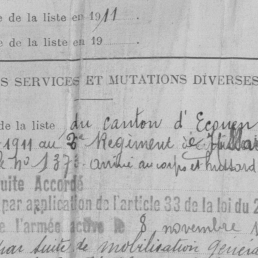 e de la liste en 1911.
e de la liste en 19
S SERVICES ET MUTATIONS DIVERSES
de la liste du canton d'Ecouen
1911 au 2e Régiment de Hussar
n° 1373. arrivé au corps et hussard
uite Accordé
par application de l'article 33 de la loi du 2
e l'armée active le 8 novembre 1
par suite de mobilisation general